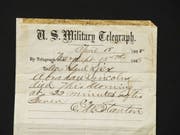 U. S. Military Telegraph.
April 15 186
By Telegraph from
Abraham Lincoln
died this morning
at 22 minutes after
Seven
E M Stanton